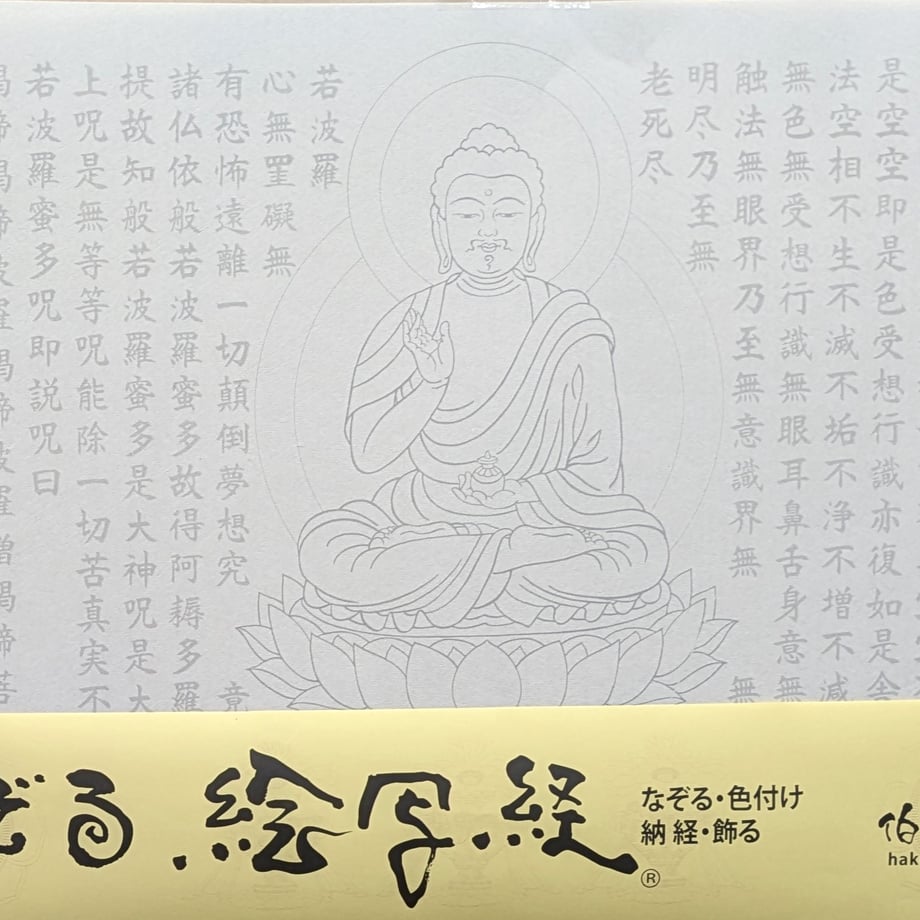 是空空即是色受想行識亦復如是舎
法空相不生不滅不垢不浄不増不減
無色無受想行識無眼耳鼻舌身意無
触法無眼界乃至無意識界無 無
明尽乃至無
老死尽
若波羅
心無罣礙無
有恐怖遠離一切顛倒夢想究 竟
諸仏依般若波羅蜜多故得阿耨多羅
提故知般若波羅蜜多是大神呪是大
上呪是無等等呪能除一切苦真実不
若波羅蜜多呪即説呪曰
羯諦羯諦波羅羯諦波羅僧羯諦菩
ぞる・絵写経®
なぞる・色付け
納経・飾る
伯
hak